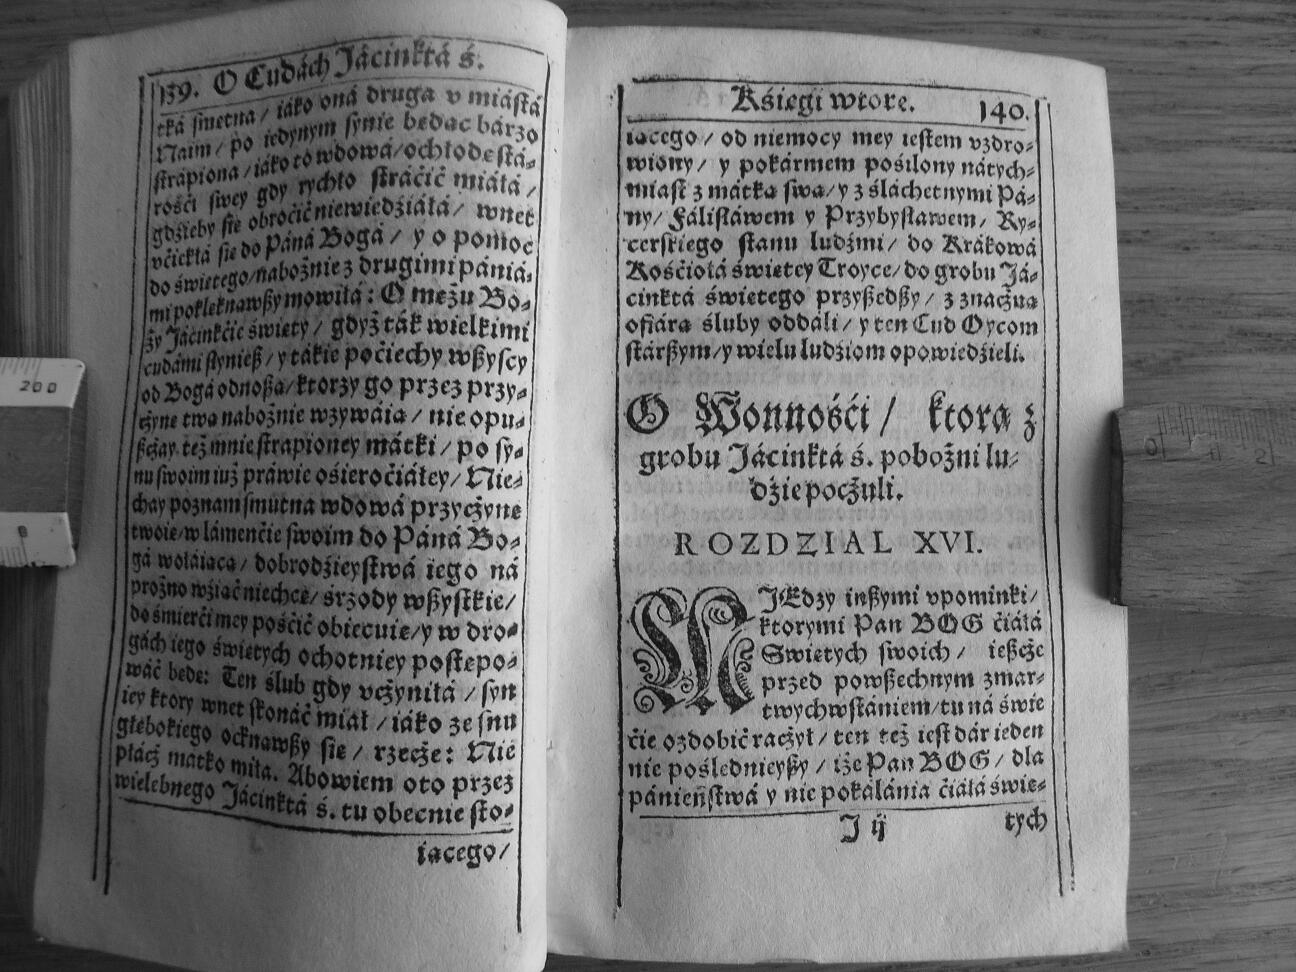 139. O Cudách Jácinktá ś.
tká smetna / iáko oná druga v miástá
Naim / po iedynym synie bedac bárzo
strapiona / iáko to wdowá / ochłode stá-
rośći swey gdy rychło stráćić miáłá /
gdźieby sie obroćić niewiedźiáłá / wnet
vćiekłá sie do Páná Bogá / y o pomoc
do świetego / nabożnie z drugimi pániá-
mi poklęknawßy mowiłá : O mężu Bo-
ży Jácinkćie święty / gdyż ták wielkimi
cudámi słynieß / y tákie poćiechy wßyscy
od Bogá odnoßa / ktorzy go przez przy-
czyne twa nabożnie wzywáia / nie opu-
ßczay też mnie strapioney mátki / po sy-
nu swoim iuż práwie ośieroćiáłey / Nie-
chay poznam smutna wdowá przyczyne
twoie / w lámenćie swoim do Páná Bo-
gá wołáiaca / dobrodźieystwá iego ná
prożno wźiać niechce / śrzody wßystkie /
do śmierći mey pośćić obiecuie / y w dro-
gách iego świetych ochotniey postepo-
wáć bede: Ten ślub gdy vczyniłá / syn
iey ktory wnet skonáć miał / iáko ze snu
głebokiego ocknawßy sie / rzecze: Nie
płácz mátko miła. Abowiem oto przez
wielebnego Jácinktá ś. tu obecnie sto-
iacego /
Kśięgi wtore. 140.
iacego / od niemocy mey iestem vzdro-
wiony / y pokármem pośilony nátych-
miast z mátka swa / y z śláchetnymi Pá-
ny / Fálisławem y Przybysławem / Ry-
cerskiego stanu ludźmi / do Krákowá
Kośćiołá świetey Troyce / do grobu Já-
cinktá świetego przyßedßy / z znaczna
ofiára śluby oddáli / y ten Cud Oycom
stárßym / y wielu ludźiom opowiedźieli.
O Wonnośći / ktora z
grobu Jácinktá ś. pobożni lu-
dźie poczuli.
ROZDZIAL XVI.
MJEdzy inßymi vpominki /
ktorymi Pan BOG ćiáłá
Swietych swoich / ießcze
przed powßechnym zmar-
twychwstániem / tu ná świe
ćie ozdobić raczył / ten też iest dár ieden
nie poślednieyßy / iże Pan BOG / dla
pánieństwá y nie pokalánia ćiáłá świe-
J ij tych